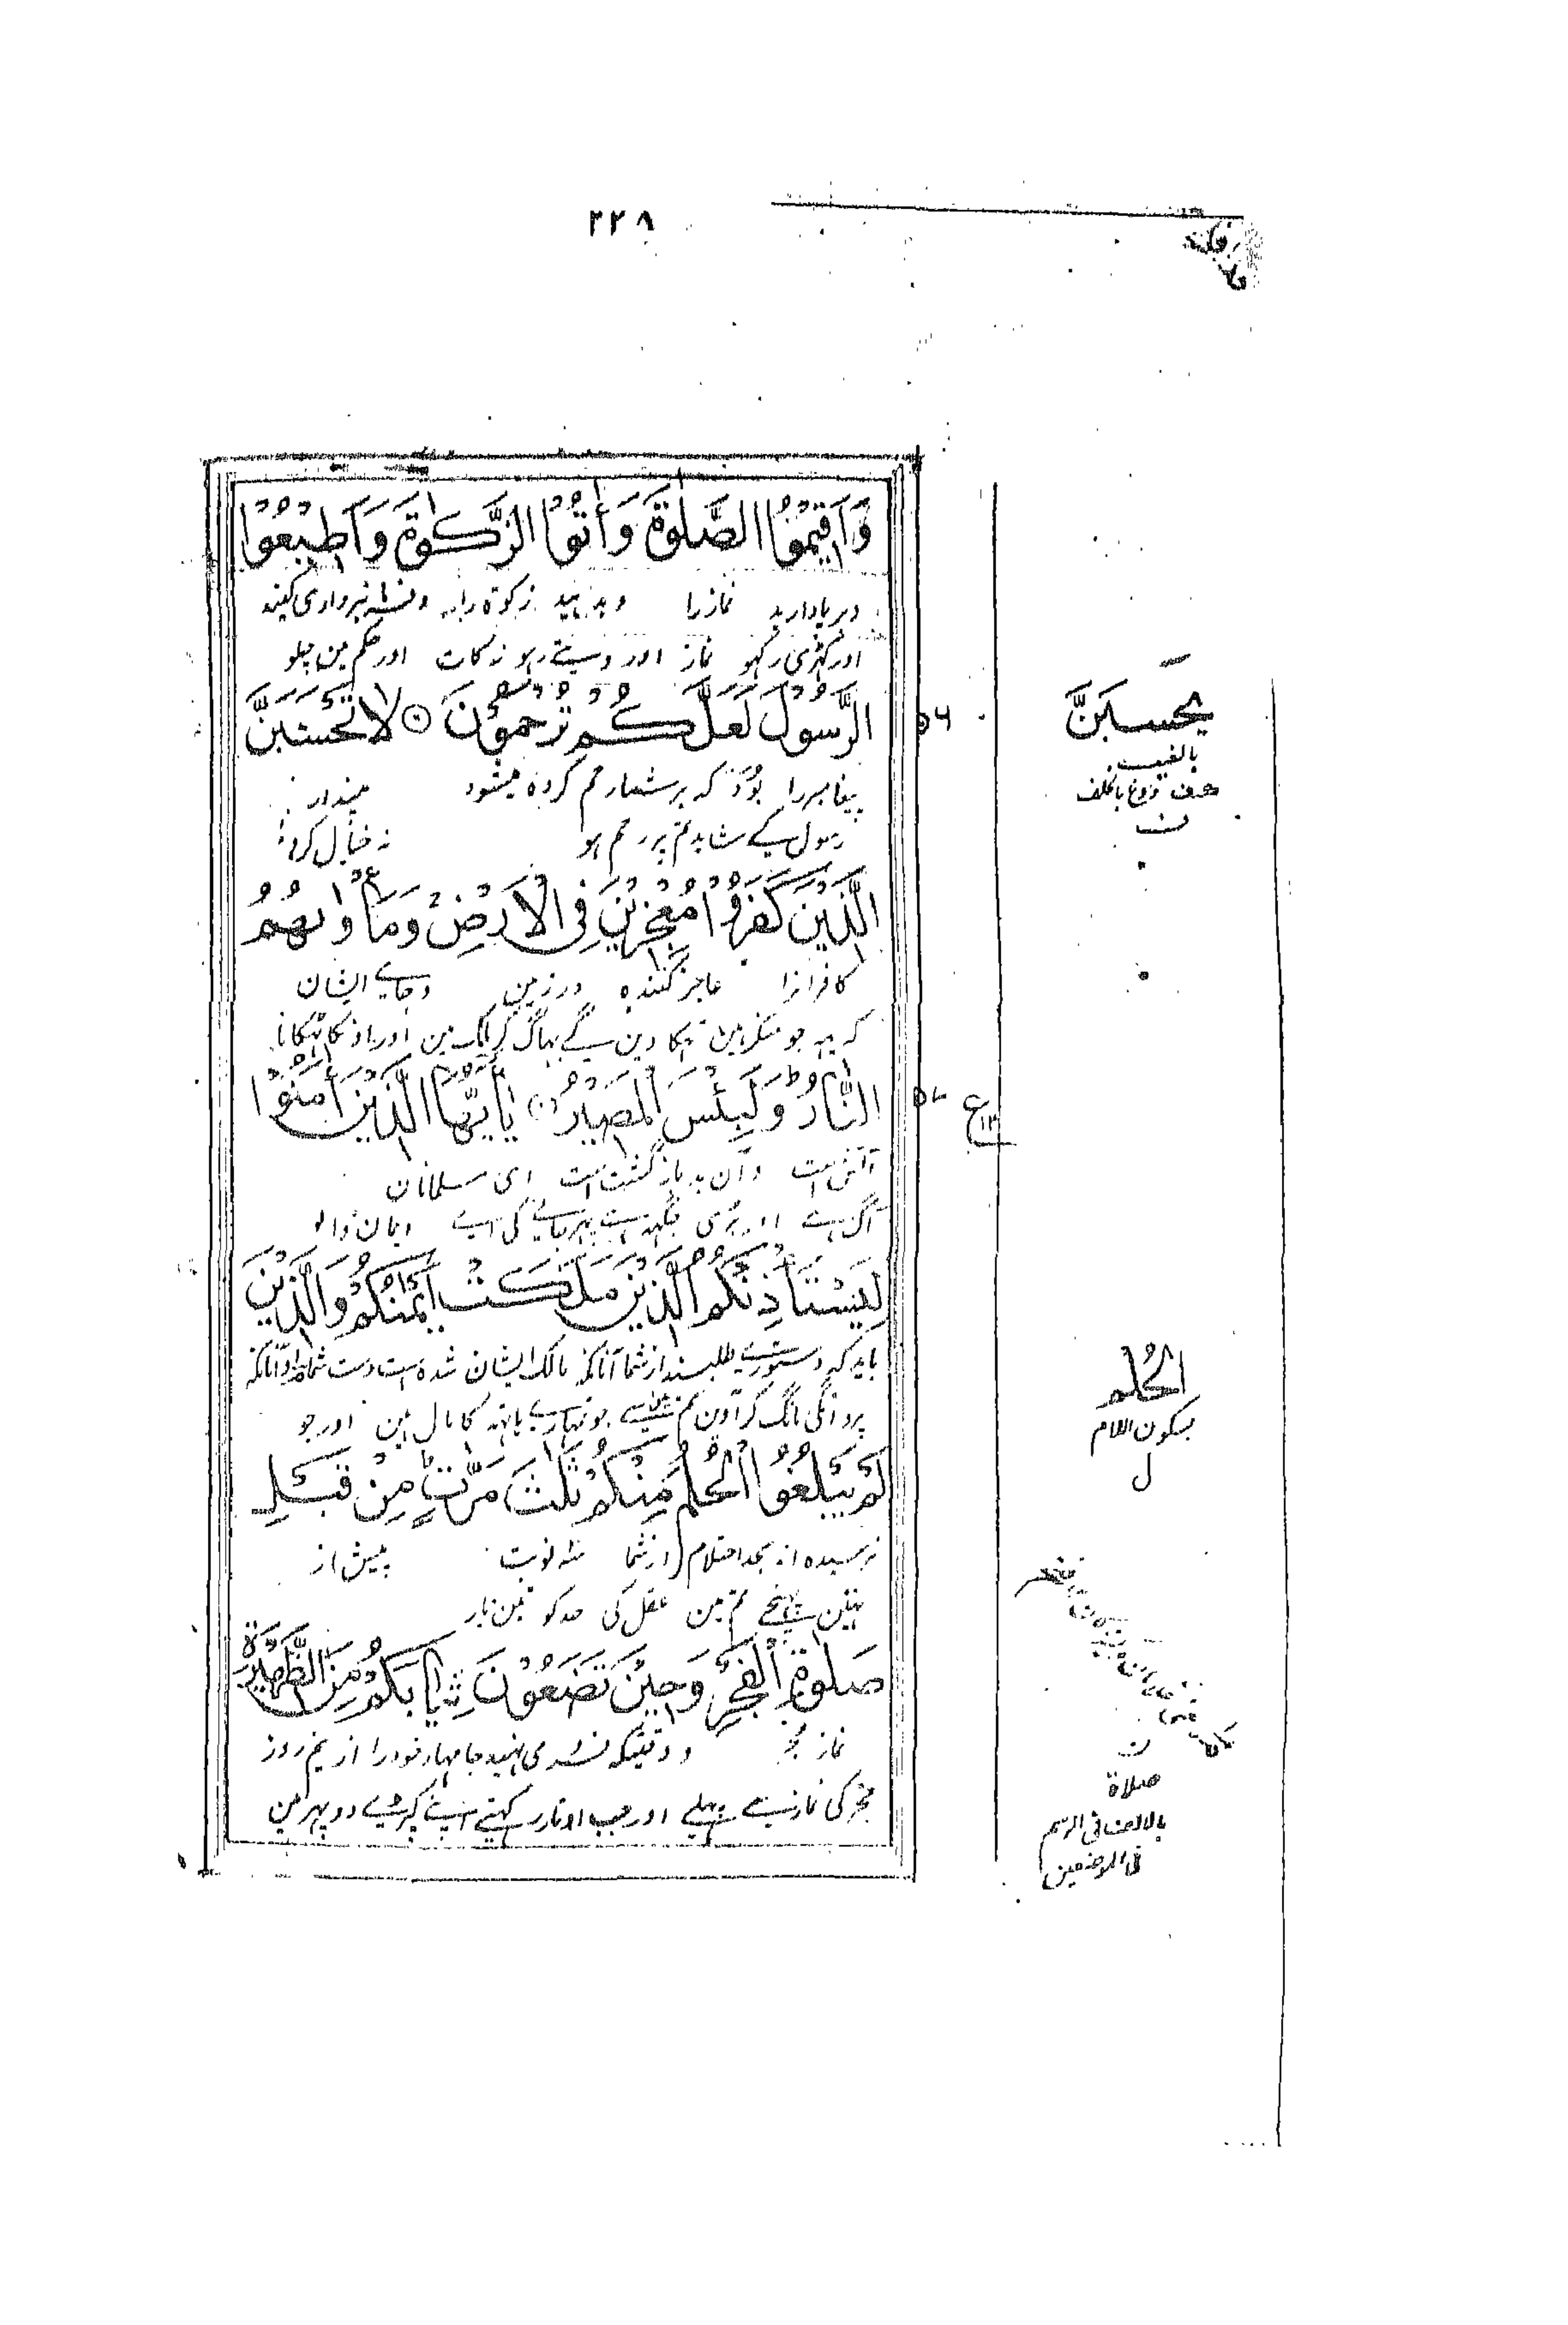 ۲۲۸
وَاَقِیْمُوا الصَّلٰوةَ وَاٰتُوا الزَّكٰوةَ وَاَطِیْعُوا
وبرپادارید نمازرا وبدہید زکوٰة را وفرمانبرداری کنید
اور کھڑی رکھو نماز اور دیتے رہو زکات اور حکم مین چلو
الرَّسُوْلَ لَعَلَّكُمْ تُرْحَمُوْنَ ۝ لَا تَحْسَبَنَّ
۵۶
پیغامبر را بُوَد کہ برشمارحم کردہ میشود مپندار
رسول کے شاید تم پر رحم ہو نہ خیال کر
الَّذِیْنَ كَفَرُوْا مُعْجِزِیْنَ فِی الْاَرْضِ وَمَاْوٰىهُمُ
کافرانرا عاجز کنندہ درزمین وجاے ایشان
کہ یہہ جو منکر ہین تہکا دین گے بہاگ کر ملک مین اور انکا ٹھکانا
النَّارُ وَلَبِئْسَ الْمَصِیْرُ ۝ یٰاَیُّهَا الَّذِیْنَ اٰمَنُوْا
۵۷
ع
آتش است وآن بد بازگشت است ای مسلمانان
آگ ہے اور بری جگہہ ہے پہر جانے کی اے ایمان والو
لِیَسْتَاْذِنْكُمُ الَّذِیْنَ مَلَكَتْ اَیْمٰنُكُمْ وَالَّذِیْنَ
باید کہ دستوری طلبند ازشما آنانکہ مالک ایشان شدہ است دست شما وآنانکہ
پروانگی مانگ کر آوین تم سے جو تمہارے ہاتہہ کا مال ہین اور جو
لَمْ یَبْلُغُوا الْحُلُمَ مِنْكُمْ ثَلٰثَ مَرّٰتٍ مِنْ قَبْلِ
نرسیدہ اند بحد احتلام ازشما سہ نوبت پیش از
نہین پہنچے تم مین عقل کی حد کو تین بار
صَلٰوةِ الْفَجْرِ وَحِیْنَ تَضَعُوْنَ ثِیَابَكُمْ مِنَ الظَّهِیْرَةِ
نماز فجر ووقتیکہ فرو می نہید جامہاء خودرا از نیم روز
فجر کی نماز سے پہلے اور جب اوتار رکہتے ہو اپنے کپڑے دوپہر مین
یَحْسَبَنَّ
بالغیب
ف
الْحُلْم
بسکون اللام
ل
ن
صلاة
بالالف فی الرسم
فی الموضعین